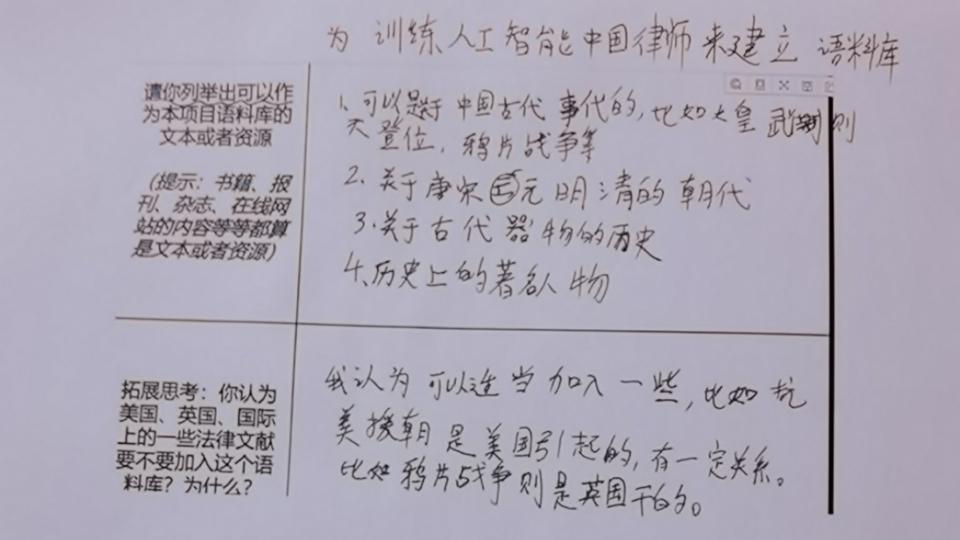 为训练人工智能中国律师来建立语料库
请你列举出可以作
为本项目语料库的
文本或者资源
(提示：书籍、报
刊、杂志、在线网
站的内容等等都算
是文本或者资源)
1、可以是关于中国古代事代的,比如女皇武则
天登位,鸦片战争等
2、关于唐宋元明清的朝代
3、关于古代器物的历史
4、历史上的著名人物
拓展思考：你认为
美国、英国、国际
上的一些法律文献
要不要加入这个语
料库？为什么？
我认为可以适当加入一些,比如抗
美援朝是美国引起的,有一定关系。
比如鸦片战争则是英国干的。